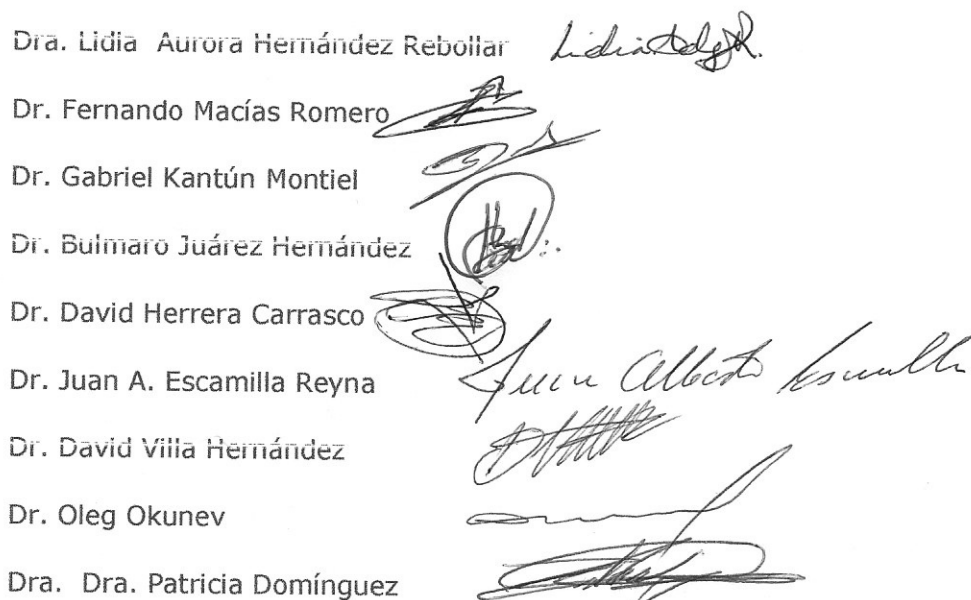 Dra. Lidia Aurora Hernández Rebollar
Dr. Fernando Macías Romero
Dr. Gabriel Kantún Montiel
Dr. Bulmaro Juárez Hernández
Dr. David Herrera Carrasco
Dr. Juan A. Escamilla Reyna Juan Alberto Escamilla
Dr. David Villa Hernández
Dr. Oleg Okunev
Dra. Dra. Patricia Domínguez